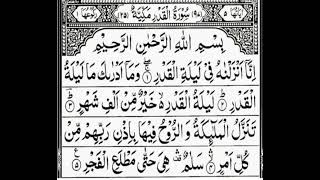 سُوْرَةُ الْقَدْرِ مَكِّيَّةٌ
بِسْمِ اللّٰهِ الرَّحْمٰنِ الرَّحِيْمِ
اِنَّاۤ اَنْزَلْنٰهُ فِیْ لَیْلَةِ الْقَدْرِ ۝۱ وَمَاۤ اَدْرٰىكَ مَا لَیْلَةُ
الْقَدْرِ ۝۲ لَیْلَةُ الْقَدْرِ خَیْرٌ مِّنْ اَلْفِ شَهْرٍ ۝۳
تَنَزَّلُ الْمَلٰٓىِٕكَةُ وَ الرُّوْحُ فِیْهَا بِاِذْنِ رَبِّهِمْ مِّنْ
كُلِّ اَمْرٍ ۝۴ سَلٰمٌ هِیَ حَتّٰى مَطْلَعِ الْفَجْرِ ۝۵